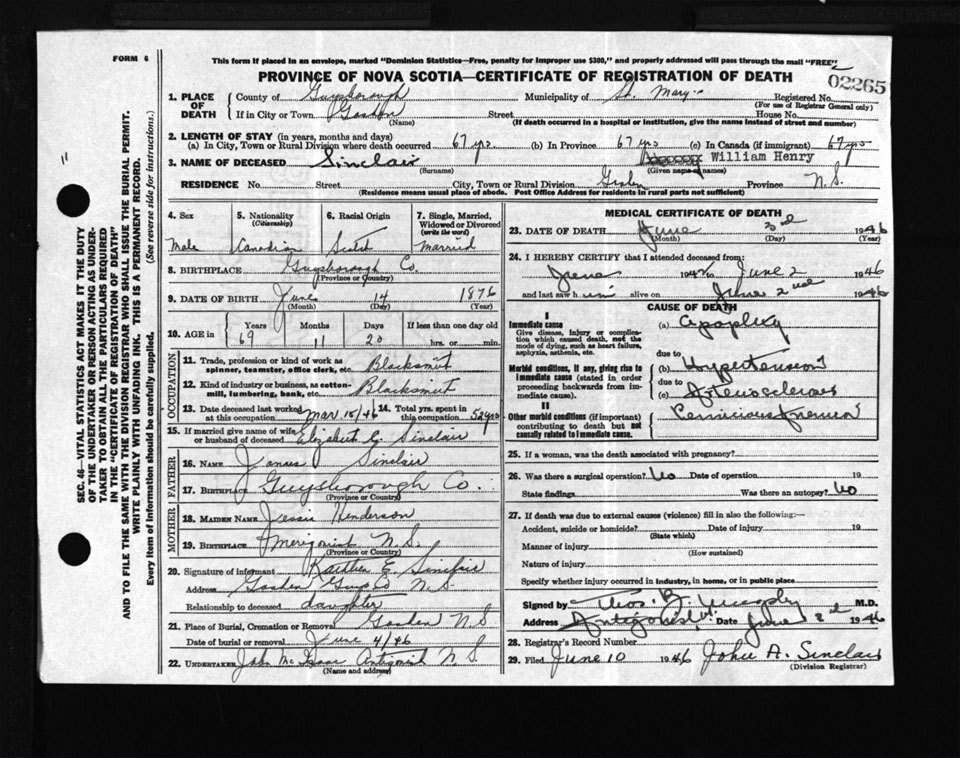 FORM 6
This form if placed in an envelope, marked "Dominion Statistics—Free, penalty for improper use $300," and properly addressed will pass through the mail "FREE"
PROVINCE OF NOVA SCOTIA—CERTIFICATE OF REGISTRATION OF DEATH
02265
1. PLACE OF DEATH
County of Guysborough Municipality of St. Mary's Registered No.
(For use of Registrar General only)
If in City or Town Goshen Street House No.
(Name) (If death occurred in a hospital or institution, give the name instead of street and number)
2. LENGTH OF STAY (in years, months and days)
(a) In City, Town or Rural Division where death occurred 67 yrs. (b) In Province 67 yrs (c) In Canada (if immigrant) 67 yrs
3. NAME OF DECEASED Sinclair William Henry
(Surname) (Given name or names)
RESIDENCE No. Street City, Town or Rural Division Goshen Province N.S.
(Residence means usual place of abode. Post Office Address for residents in rural parts not sufficient)
4. Sex
Male
5. Nationality
(Citizenship)
Canadian
6. Racial Origin
Scotch
7. Single, Married, Widowed or Divorced
(write the word)
Married
8. BIRTHPLACE Guysborough Co.
(Province or Country)
9. DATE OF BIRTH June 14 1876
(Month) (Day) (Year)
10. AGE in Years Months Days If less than one day old
69 11 20 hrs. or min.
OCCUPATION
11. Trade, profession or kind of work as spinner, teamster, office clerk, etc. Blacksmith
12. Kind of industry or business, as cotton-mill, lumbering, bank, etc. Blacksmith
13. Date deceased last worked at this occupation Mar 15/46 14. Total yrs. spent in this occupation 52 yrs
15. If married give name of wife or husband of deceased Elizabeth G. Sinclair
FATHER
16. NAME James Sinclair
17. BIRTHPLACE Guysborough Co.
(Province or Country)
MOTHER
18. MAIDEN NAME Jessie Henderson
19. BIRTHPLACE N.S.
(Province or Country)
20. Signature of informant E. Sinclair
Address Goshen Guys Co N.S
Relationship to deceased daughter
21. Place of Burial, Cremation or Removal Goshen N.S
Date of burial or removal June 4/46
22. UNDERTAKER John McIsaac Antigonish N.S
(Name and address)
MEDICAL CERTIFICATE OF DEATH
23. DATE OF DEATH June 3rd 1946
(Month) (Day) (Year)
24. I HEREBY CERTIFY that I attended deceased from:
194 to June 2 1946
and last saw him alive on June 2nd 1946
CAUSE OF DEATH
I
Immediate cause
Give disease, injury or complication which caused death, not the mode of death, such as heart failure, asphyxia, asthenia, etc.
(a) Apoplexy
due to
Morbid conditions, if any, giving rise to immediate cause (stated in order proceeding backwards from immediate cause).
(b) Hypertension
due to
(c) Arteriosclerosis
II
Other morbid conditions (if important) contributing to death but not causally related to immediate cause.
Pernicious Anemia
25. If a woman, was the death associated with pregnancy?
26. Was there a surgical operation? No Date of operation 19
State findings Was there an autopsy? No
27. If death was due to external causes (violence) fill in also the following:—
Accident, suicide or homicide? Date of injury 19
(State which)
Manner of injury
(How sustained)
Nature of injury
Specify whether injury occurred in industry, in home, or in public place
Signed by Thos. B. Murphy M.D.
Address Antigonish Date June 2nd 1946
28. Registrar's Record Number
29. Filed June 10 1946 John A. Sinclair
(Division Registrar)
SEC. 46—VITAL STATISTICS ACT MAKES IT THE DUTY
OF THE UNDERTAKER OR PERSON ACTING AS UNDER-
TAKER TO OBTAIN ALL THE PARTICULARS REQUIRED
IN THE "CERTIFICATE OF REGISTRATION OF DEATH"
AND TO FILE THE SAME WITH THE DIVISION REGISTRAR WHO SHALL ISSUE THE BURIAL PERMIT.
WRITE PLAINLY WITH UNFADING INK. THIS IS A PERMANENT RECORD.
Every item of information should be carefully supplied. (See reverse side for instructions.)